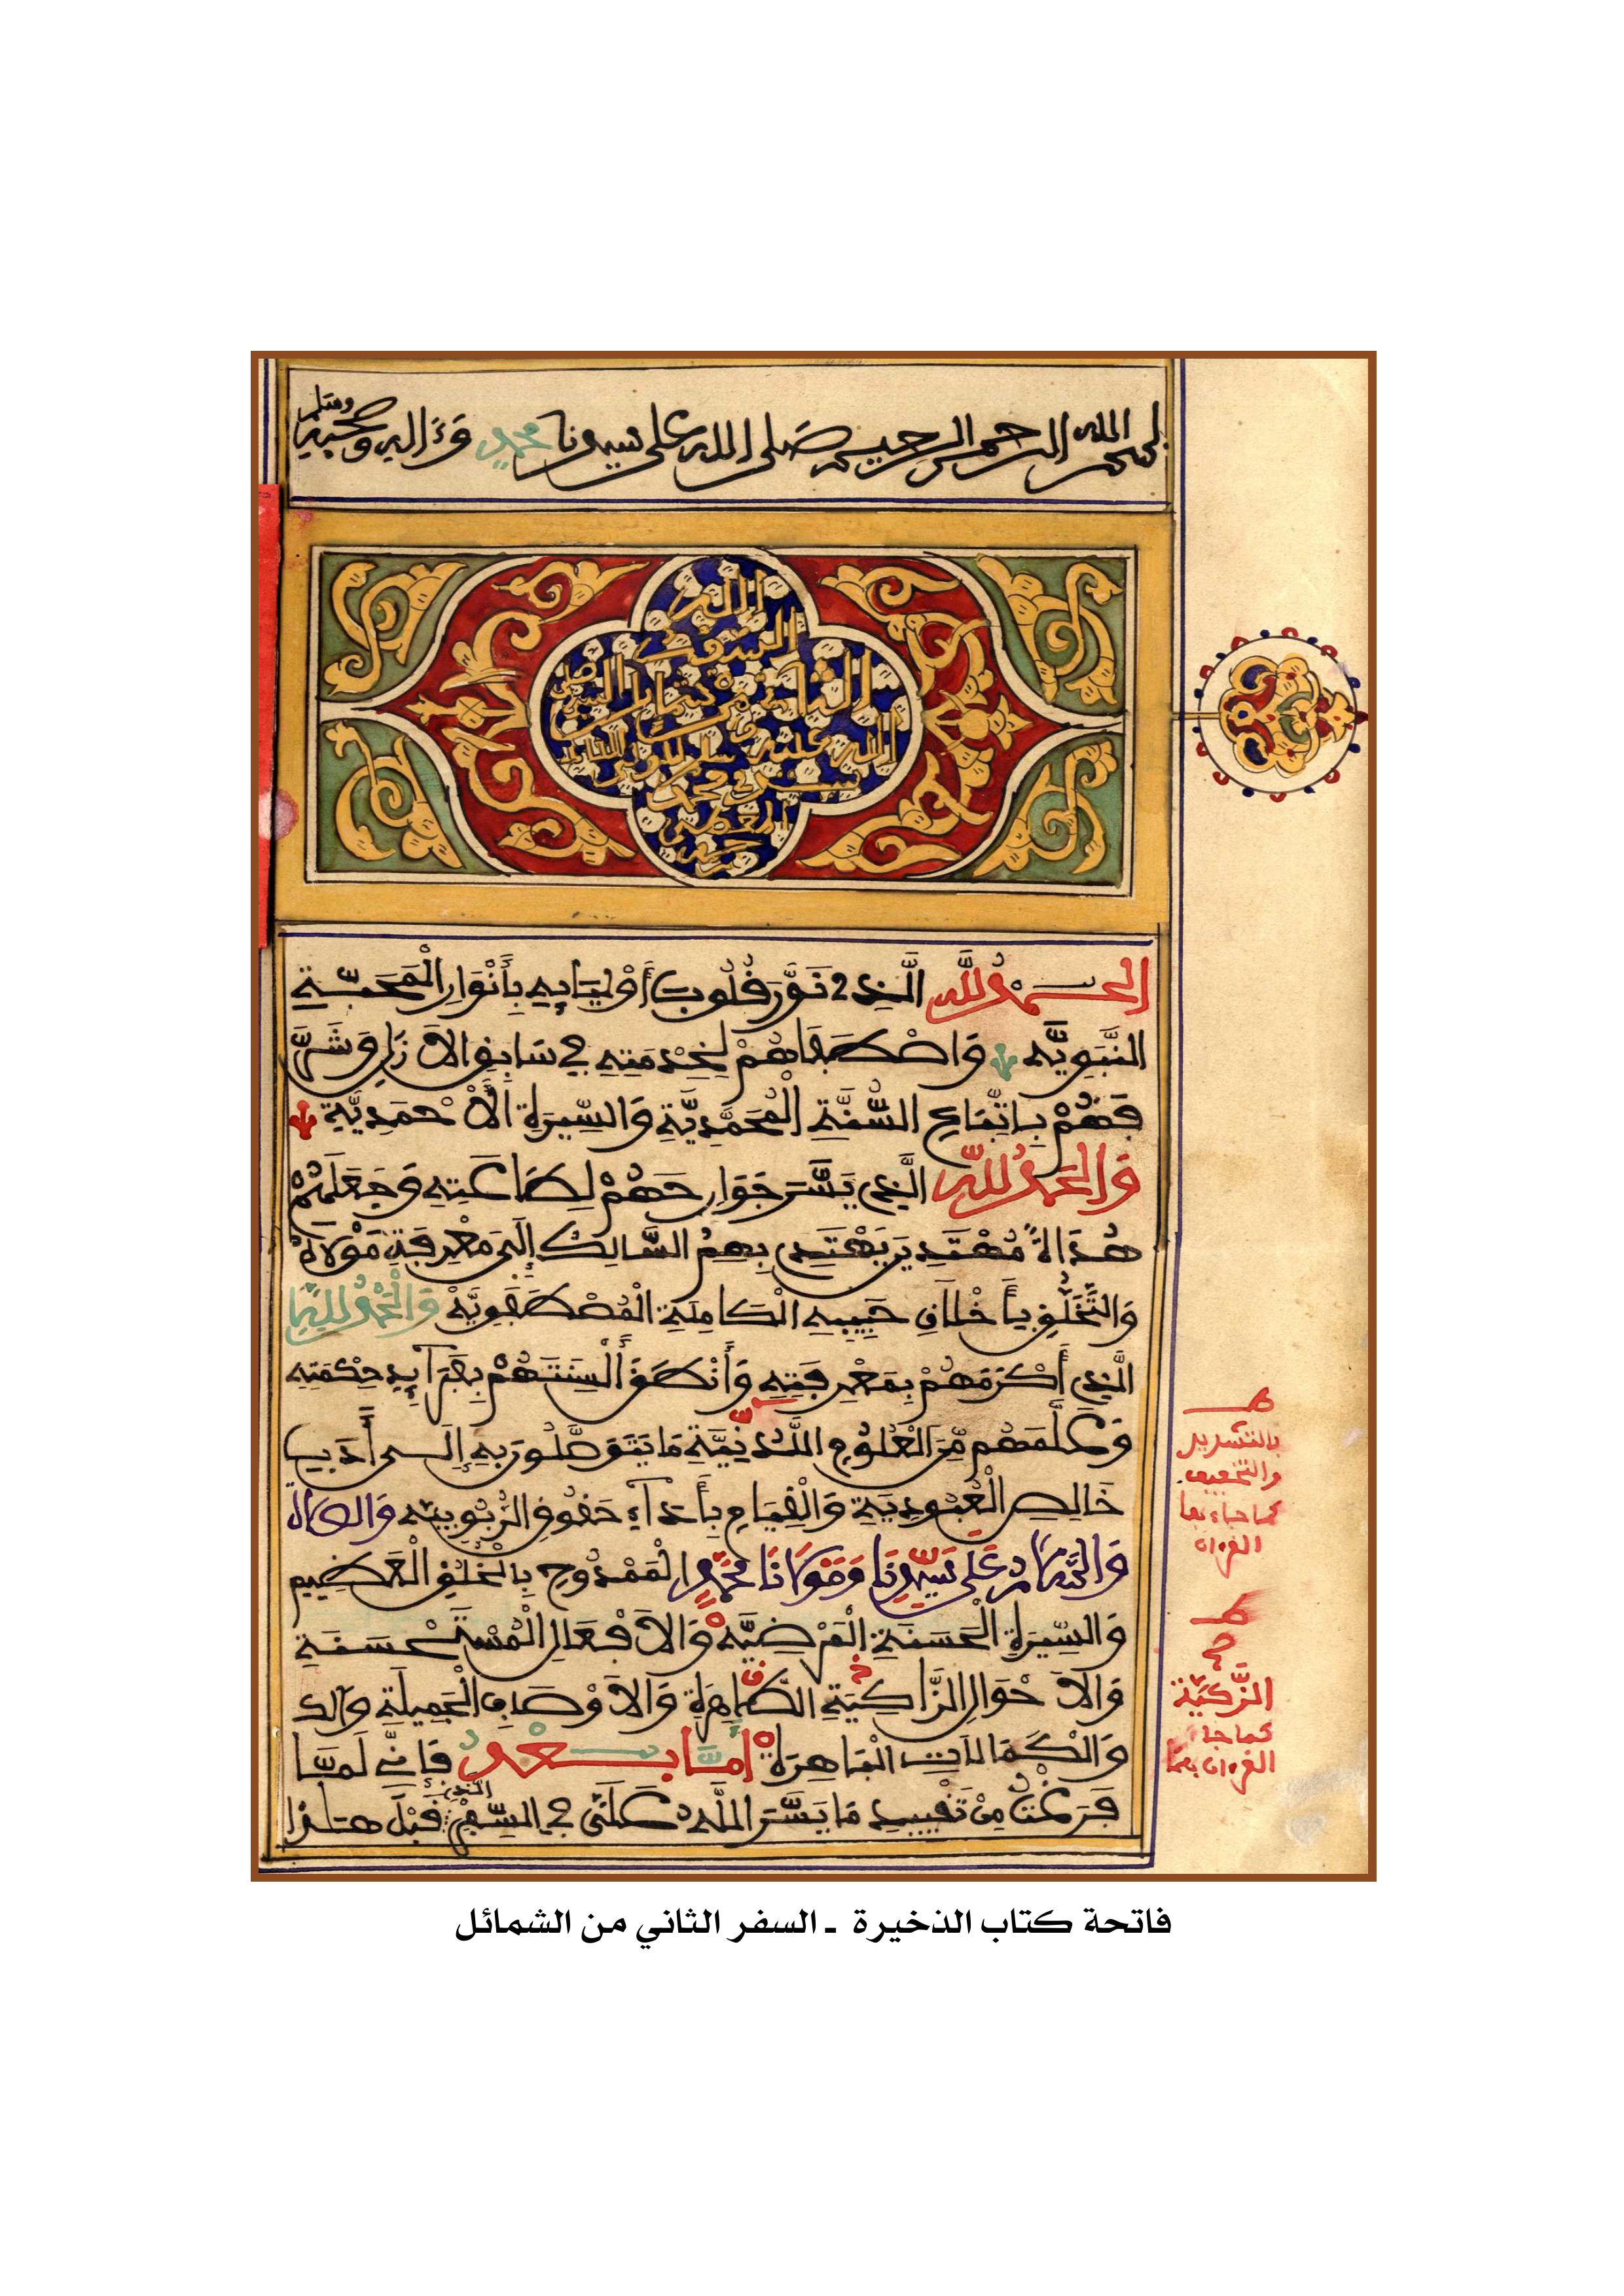 بسم الله الرحمن الرحيم صلى الله على سيدنا محمد وءاله وصحبه وسلم
الله
السفر
الثاني من شمائل النبي صلى
الله عليه وسلم
محمد
المعطي
الحمد لله الَّذِي نَوَّرَ قُلُوبَ أَوْلِيَايِهِ بِأَنْوَارِ الْمَحَبَّةِ
النَّبَوِيَّه وَاصْطَفَاهُمْ لِخِدْمَتِهِ فِي سَابِقِ الاَزَلِ وَشَرَّ
فَهُمْ بِاتِّبَاعِ السُّنَّةِ الْمُحَمَّدِيَّةِ وَالسِّيرَةِ الْأَحْمَدِيَّةِ
وَالْحَمْدُ لِلَّهِ الَّذِي يَسَّرَ جَوَارِحَهُمْ لِطَاعَتِهِ وَجَعَلَهُمْ
هُدَاةً مُهْتَدِينَ يَهْتَدِي بِهِمُ السَّالِكُ إِلَى مَعْرِفَةِ مَوْلَاهُ
وَالتَّخَلُّقِ بِأَخْلَاقِ حَبِيبِهِ الْكَامِلَةِ الْمُصْطَفَوِيَّهْ وَالْحَمْدُ لِلَّهِ
الَّذِي أَكْرَمَهُمْ بِمَعْرِفَتِهِ وَأَنْطَقَ أَلْسِنَتَهُمْ بِفَرَآيِدِ حِكْمَتِهِ
وَعَلَّمَهُم مِّنَ الْعُلُومِ اللَّدُنِّيَّةِ مَا يَتَوَصَّلُونَ بِهِ إِلَى أَدَبِ
خَالِصِ الْعُبُودِيَةِ وَالْقِيَامِ بِأَدَآءِ حُقُوقِ الرُّبُوبِيَّه وَالصَّلاَةُ
وَالسَّلاَمُ عَلَى سَيِّدِنَا وَمَوْلَانَا مُحَمَّدٍ الْمَمْدُوحِ بِالْخُلُقِ الْعَظِيمِ
وَالسِّيرَةِ الْحَسَنَةِ الْمَرْضِيَّه وَالاَفْعَالِ الْمُسْتَحْسَنَةِ
وَالاَحْوَالِ الزَّاكِيَةِ الطَّاهِرَةِ وَالاَوْصَافِ الْجَمِيلَةِ
وَالْكَمَالَاتِ الْبَاهِرَةِ أَمَّا بَعْدُ فَإِنِّي لَمَّا
فَرَغْتُ مِنْ تَقْيِيدِ مَا يَسَّرَ اللَّهُ عَلَيَّ فِي السِّفْرِ الَّذِي قَبْلَ هَذَا
بالتشديد
والتخفيف
كما جاء بهما
القرءان
صح
الزَّكِيَّة
كما جا
القرءان بهما
فاتحة كتاب الذخيرة ـ السفر الثاني من الشمائل